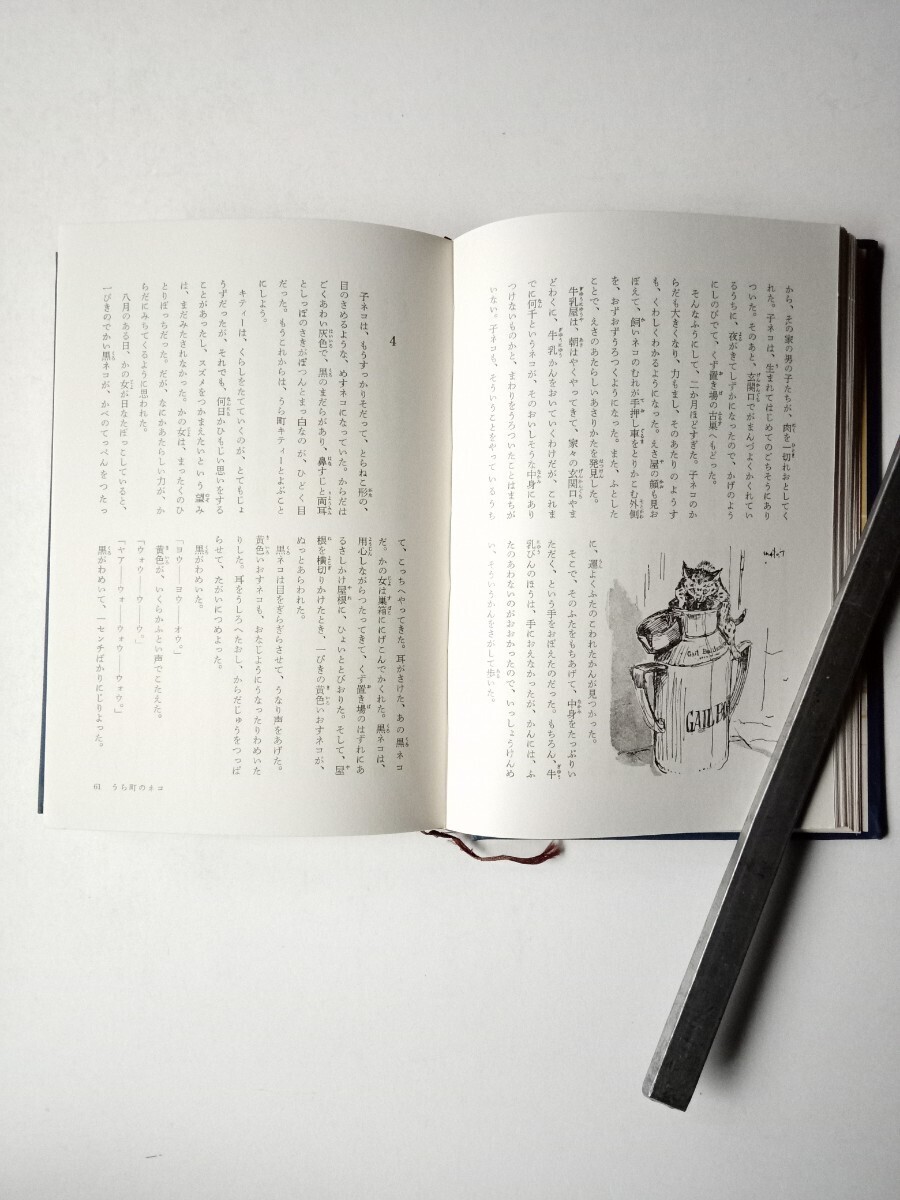 から、その家の男の子たちが、肉を一切れおとしてく
れた。子ネコは、生まれてはじめてのごちそうにあり
ついた。そのあと、玄関口でがまんづよくかくれてい
るうちに、夜がきてしずかになったので、かげのよう
にしのびでて、くず置き場の古巣へもどった。
そんなふうにして、二か月ほどすぎた。子ネコのか
らだも大きくなり、力もまし、そのあたりのようす
も、くわしくわかるようになった。えさ屋の顔も見お
ぼえて、飼いネコのむれが手押し車をとりかこむ外側
を、おずおずうろつくようになった。また、ふとした
ことで、えさのあたらしいあさりかたを発見した。
牛乳屋は、朝はやくやってきて、家々の玄関口やま
どわくに、牛乳かんをおいていくわけだが、これま
でに何千というネコが、そのおいしそうな中身にあり
つけないものかと、まわりをうろついたことはまちが
いない。子ネコも、そういうことをやっているうち
に、運よくふたのこわれたかんが見つかった。
そこで、そのふたをもちあげて、中身をたっぷりい
ただく、という手をおぼえたのだった。もちろん、牛
乳びんのほうは、手におえなかったが、かんには、ふ
たのあわないのがおおかったので、いっしょうけんめ
い、そういうかんをさがして歩いた。
Gail Borden
GAIL BO
4
子ネコは、もうすっかりそだって、とらねこ形の、
目のさめるような、めすネコになっていた。からだは
ごくあわい灰色で、黒のまだらがあり、鼻すじと両耳
としっぽのさきがぽつんとまっ白なのが、ひどく目
だった。もうこれからは、うら町キティーとよぶこと
にしよう。
キティーは、くらしをたてていくのが、とてもじょ
うずだったが、それでも、何日かひもじい思いをする
ことがあったし、スズメをつかまえたいという望み
は、まだみたされなかった。かの女は、まったくのひ
とりぼっちだった。だが、なにかあたらしい力が、か
らだにみちてくるように思われた。
八月のある日、かの女が日なたぼっこしていると、
一ぴきのでかい黒ネコが、かべのてっぺんをつたっ
て、こっちへやってきた。耳がさけた、あの黒ネコ
だ。かの女は巣箱ににげこんでかくれた。黒ネコは、
用心しながらつたってきて、くず置き場のはずれにあ
るさしかけ屋根に、ひょいととびおりた。そして、屋
根を横切りかけたとき、一ぴきの黄色いおすネコが、
ぬっとあらわれた。
黒ネコは目をぎらぎらさせて、うなり声をあげた。
黄色いおすネコも、おなじようにうなったりわめいた
りした。耳をうしろへたおし、からだじゅうをつっぱ
らせて、たがいにつめよった。
黒がわめいた。
「ヨウ――ヨウ――オウ。」
黄色が、いくらかふとい声でこたえた。
「ウォウ――ウ――ウ。」
「ヤア――ウォウ――ウォウ。」
黒がわめいて、一センチばかりにじりよった。
61 うら町のネコ